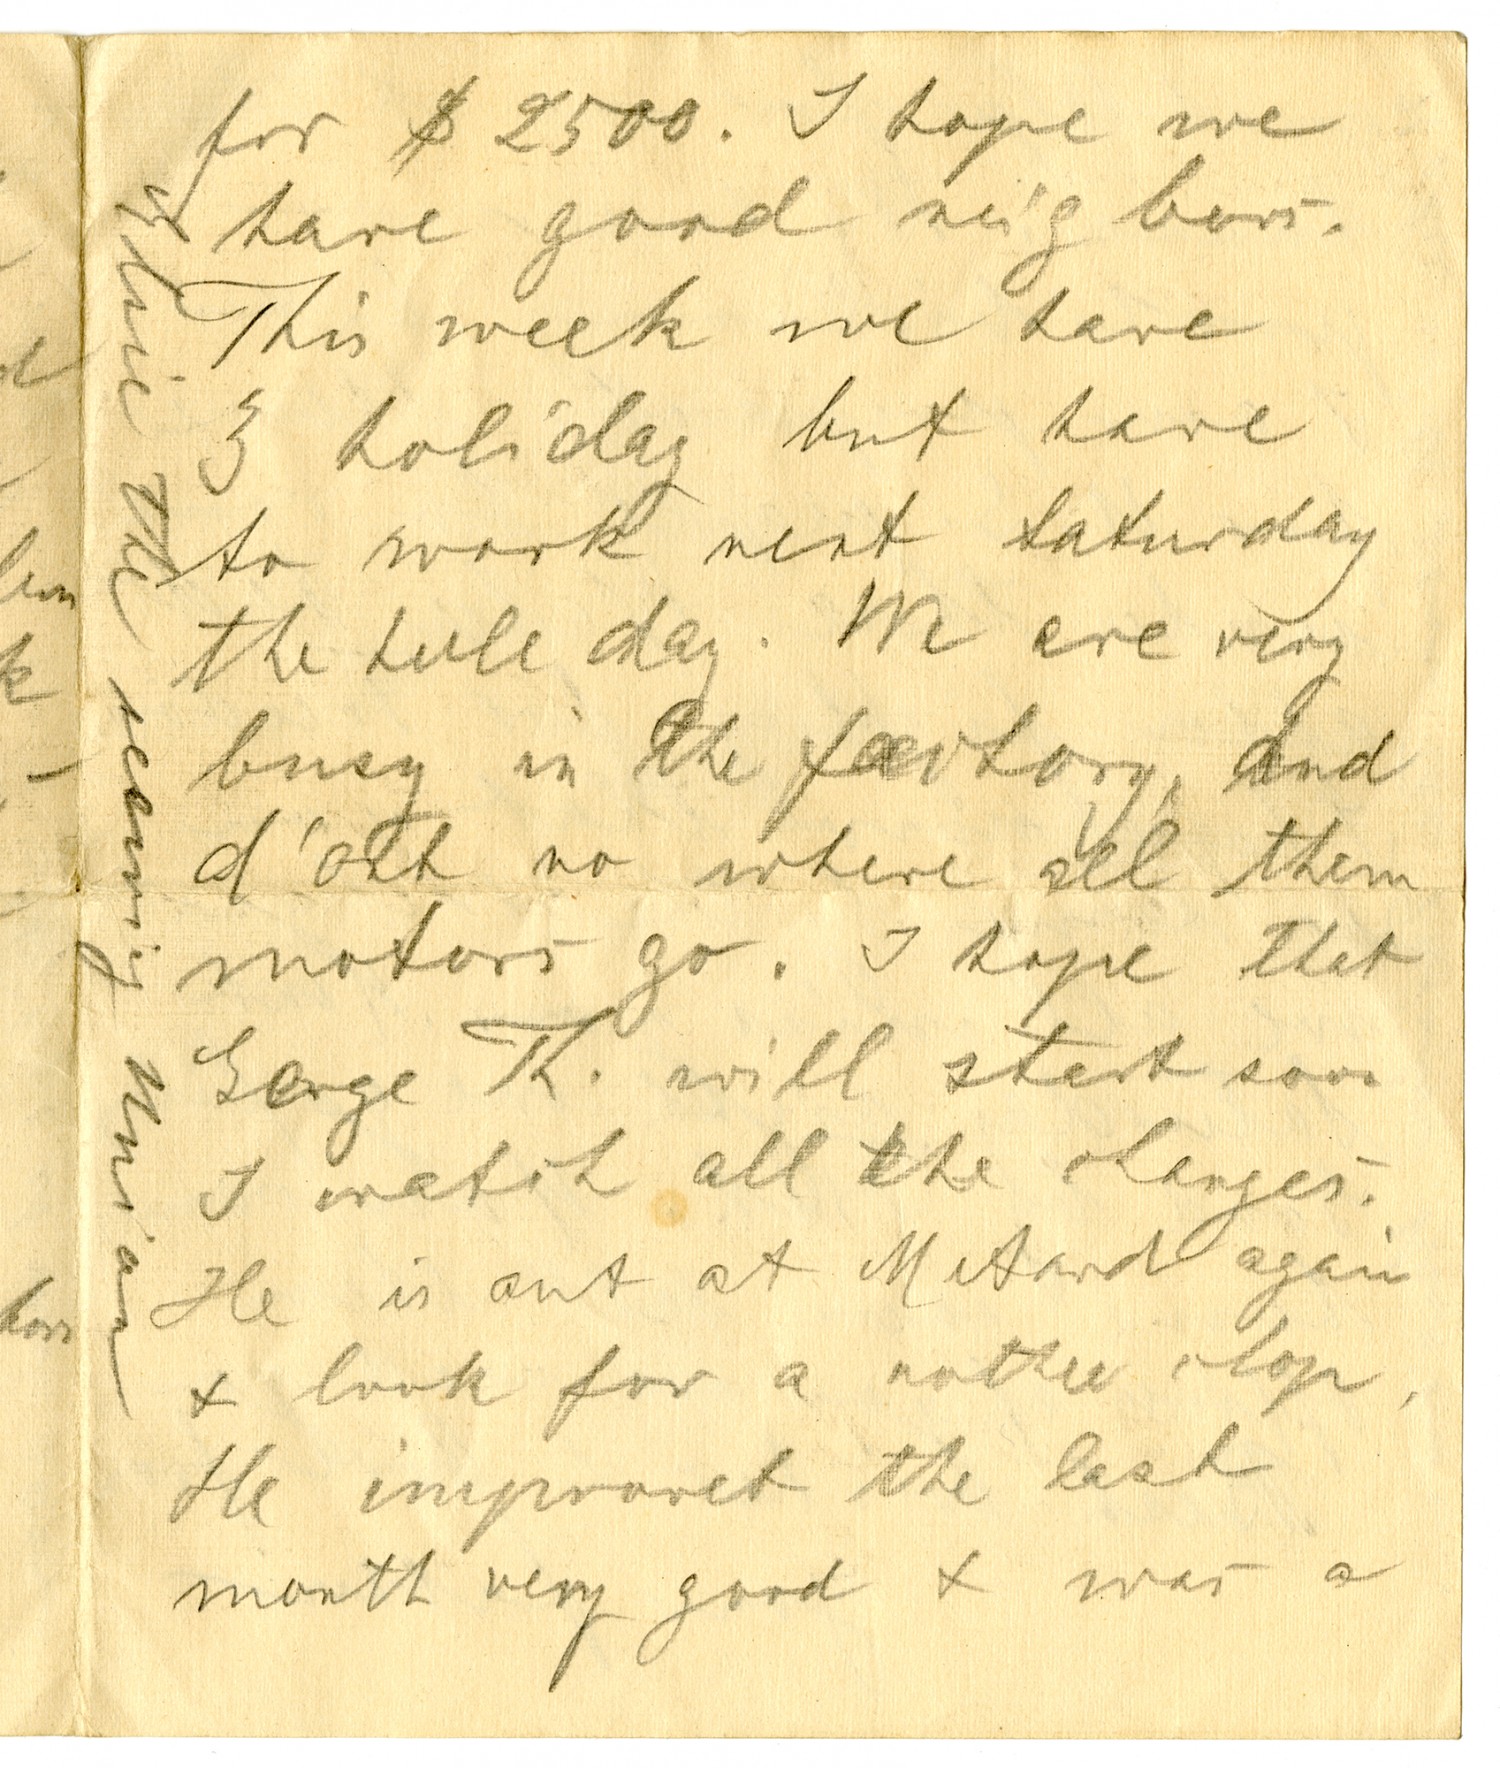 for $2500. I hope we
have good neigbors.
This week we have
3 holiday but have
to work next saturday
the hole day. We are very
busy in the factory, and
d'ont no where all them
motors go. I hope that
George K. will start soon
I watch all the changes.
He is out at again
& look for a nother shop,
He improvet the last
month very good & was a
the sewing